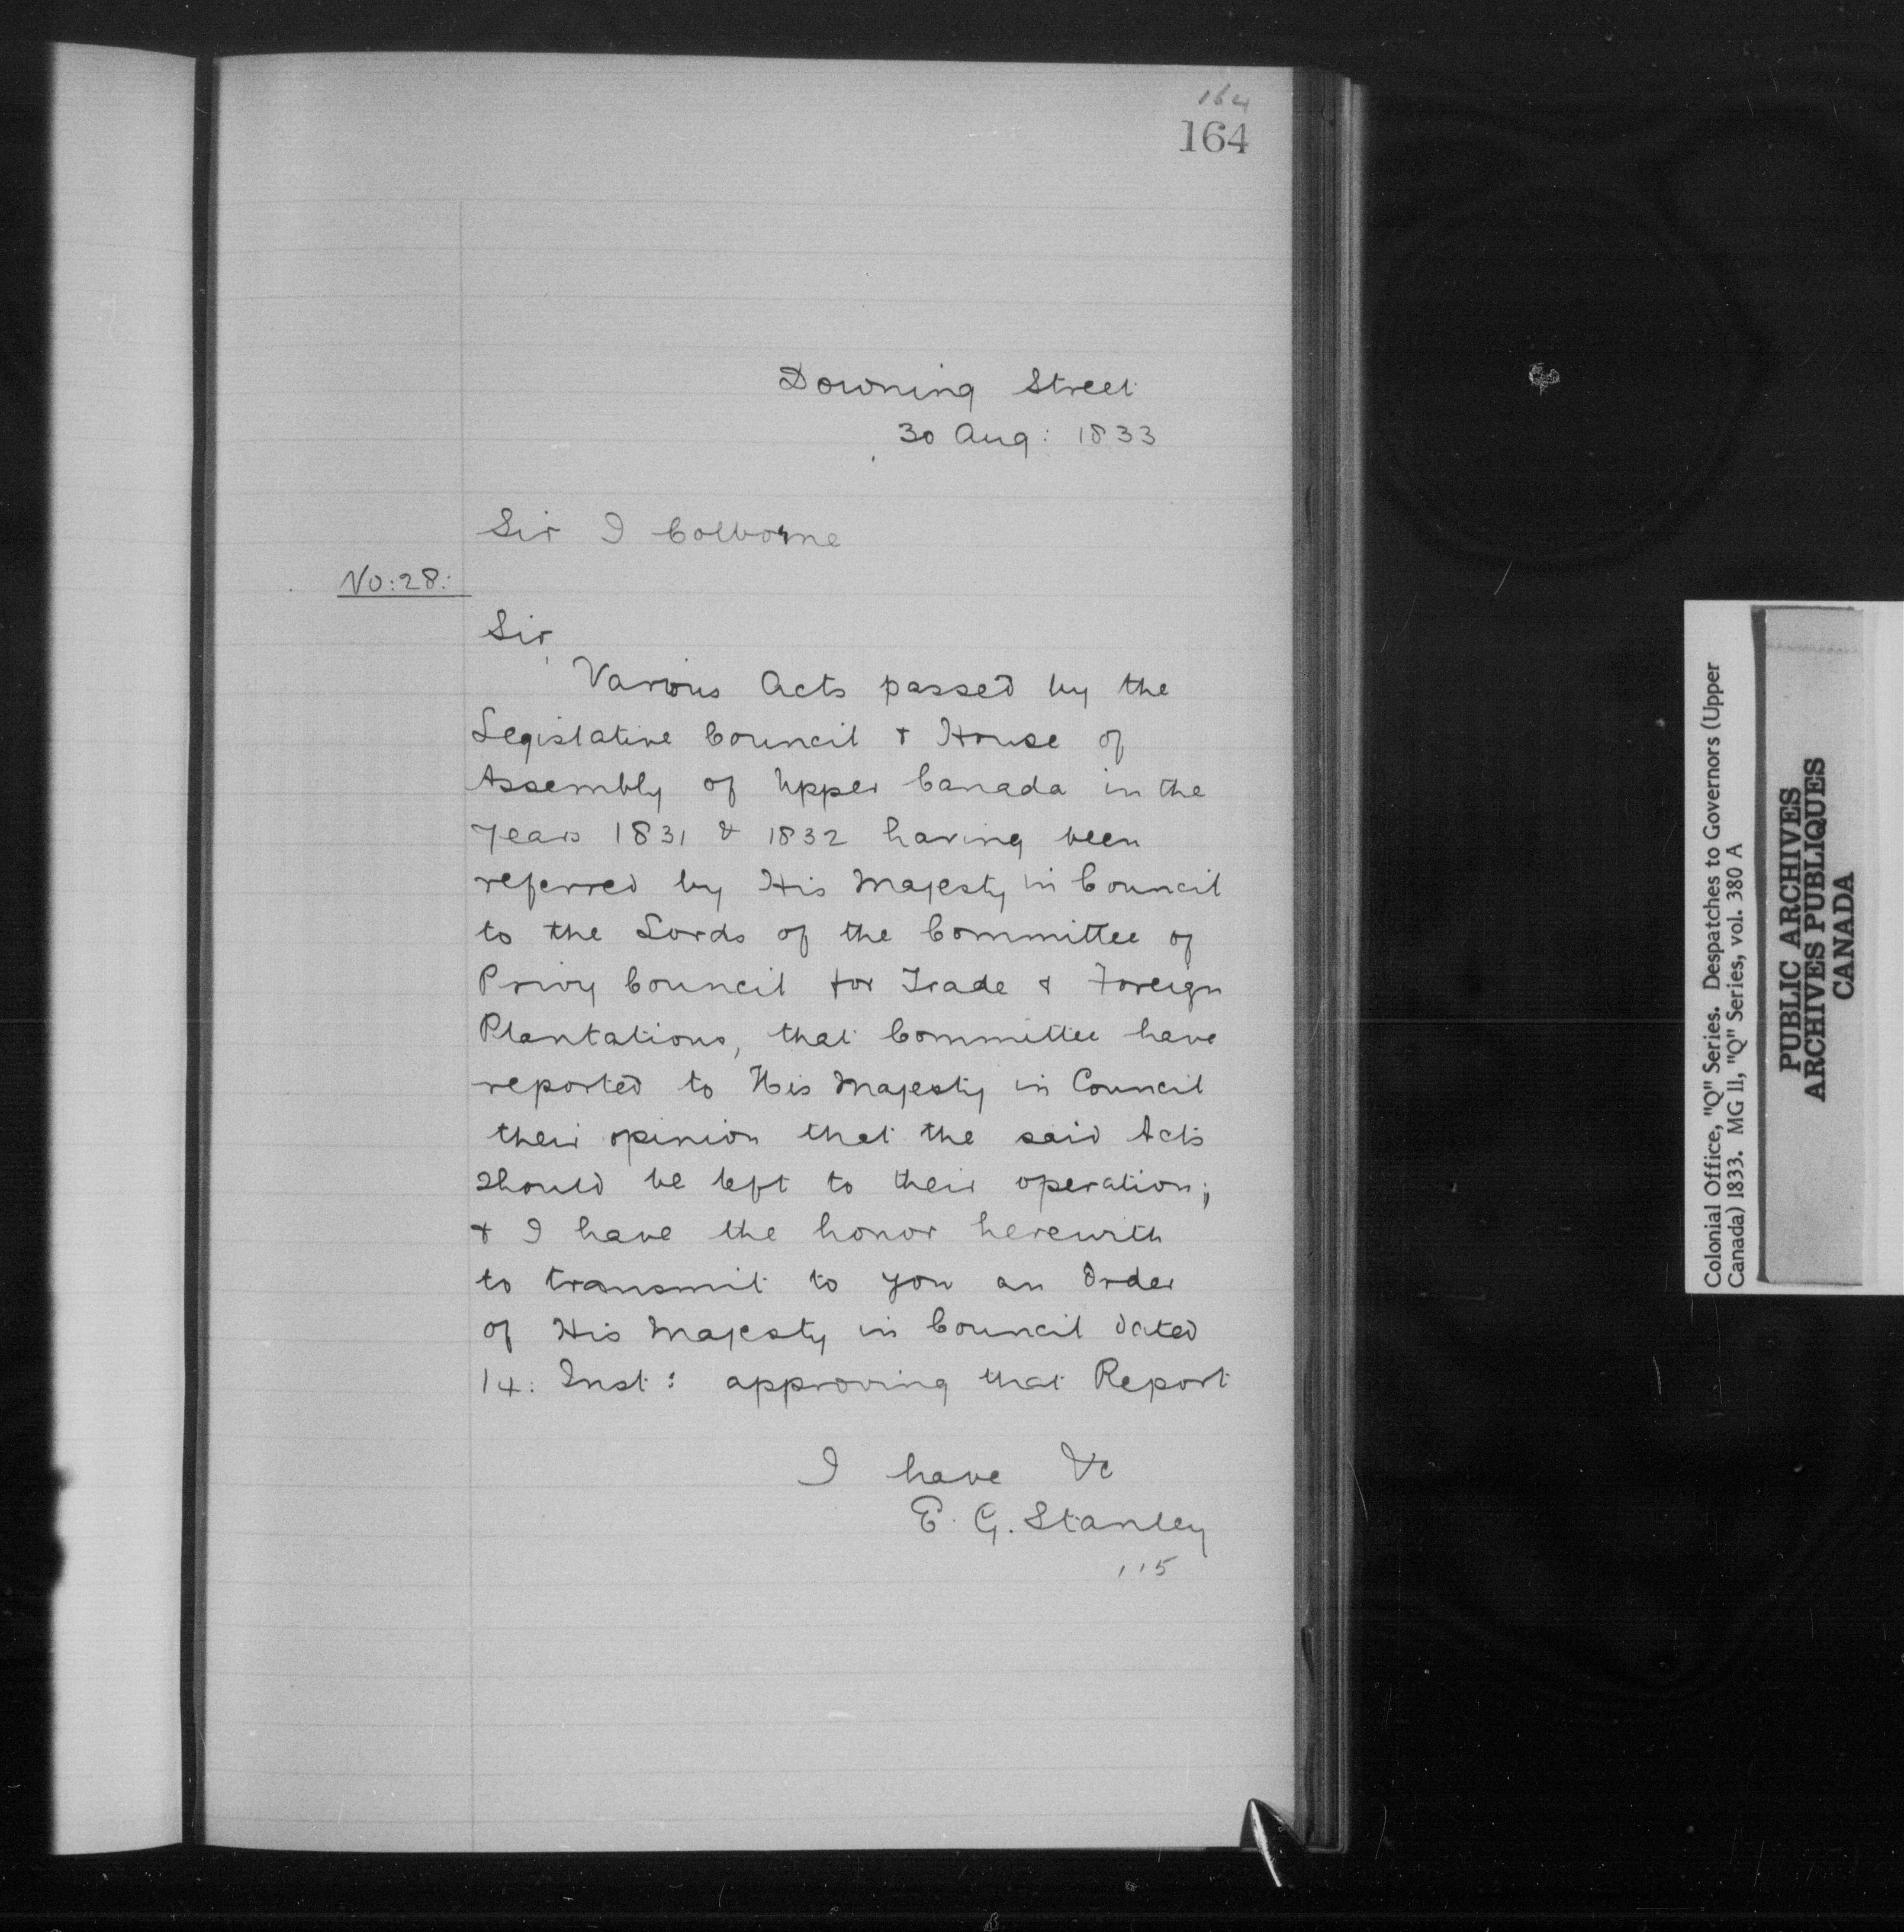 164
164
Downing Street
30 Aug: 1833
Sir J Colborne
No: 28:
Sir,
Various Acts passed by the
Legislative Council & House of
Assembly of Upper Canada in the
years 1831 & 1832 having been
referred by His Majesty in Council
to the Lords of the Committee of
Privy Council for Trade & Foreign
Plantations, that Committee have
reported to His Majesty in Council
their opinion that the said Acts
should be left to their operation;
& I have the honor herewith
to transmit to you an Order
of His Majesty in Council dated
14: Inst: approving that Report
I have &c
E. G. Stanley
115
Colonial Office, "Q" Series. Despatches to Governors (Upper
Canada) 1833. MG 11, "Q" Series, vol. 380 A
PUBLIC ARCHIVES
ARCHIVES PUBLIQUES
CANADA